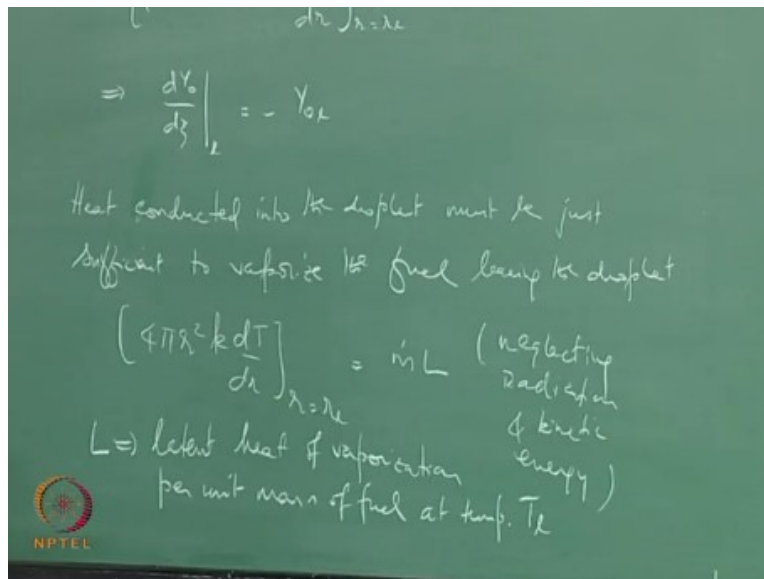 dr ]r=rl
⇒ dYo/dξ |l = - Yol
Heat conducted into the droplet must be just
sufficient to vaporize the fuel leaving the droplet
[4πr² k dT/dr]r=rl = ṁL (neglecting
Radiation
& kinetic
energy)
L ⇒ latent heat of vaporization
per unit mass of fuel at temp. Tl
NPTEL